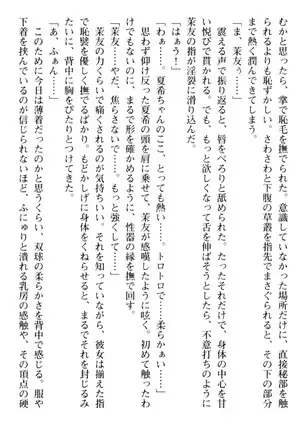 むかと思ったら、掌で恥毛を撫でられる。意識していなかった分、直接秘部を触
られるよりも恥ずかしい。さわさわと下腹の草叢を指先でまさぐられると、その下の部分
まで熱く潤んできてしまう。
「ま、茉友……」
震える声で振り返ると、唇をぺろりと舐められた。たったそれだけで、身体の中心を甘
い悦びで貫かれる。でも、もっと欲しくなって舌を伸ばそうとしたら、不意打ちのように
茉友の指が淫裂に滑り込んだ。
「はぁう！」
「夏希ちゃんのここ、とっても熱い……。トロトロで……柔らかぁい……」
思わず仰け反った夏希の頭を肩に乗せて、茉友が感嘆したように呟く。初めて触ったわ
けでもないのに、まるで形を確かめるように、性器の縁を撫で回す。
「茉友……やだ、焦らさないで……。もっと強くして……」
茉友の力くらいで激しくされるのが気持ちいい。それを知っていながら、彼女は揃えた指
で恥襞を優しく撫でるばかり。もどかしげに身体をくねらせると、まるでそれを封じるみ
たいに、背中に胸をぴたりとつけてきた。
「あ、ふぁん……」
このために今日は薄着だったのかと思うくらい、双球の柔らかさを背中で感じる。服や
下着を挟んでいるのが信じられないほど、ふにゅりと潰れる乳房の感触や、その頂点の硬